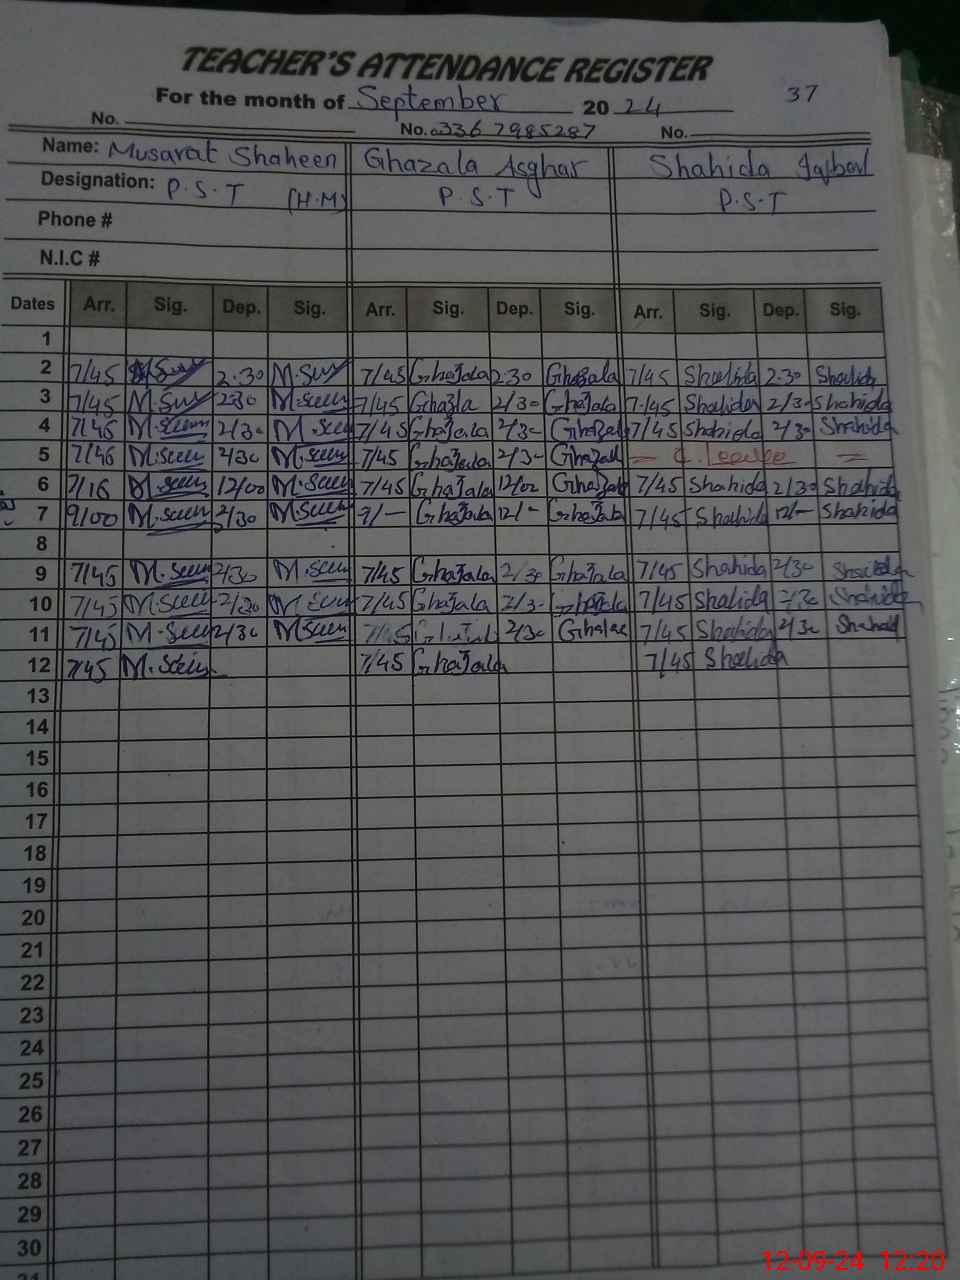 TEACHER'S ATTENDANCE REGISTER
For the month of September 20 24 37
No. No. 0336 7985287 No.
Name: Musarat Shaheen Ghazala Asghar Shahida Iqbal
Designation: P.S.T (H.M) P.S.T P.S.T
Phone #
N.I.C #
Dates Arr. Sig. Dep. Sig. Arr. Sig. Dep. Sig. Arr. Sig. Dep. Sig.
1
2 7/45 2:30 7/45 Ghazala 2:30 Ghazala 7/45 Shahida 2:30 Shahida
3 7/45 2:30 7/45 Ghazla 2/30 Ghazala 7/45 Shahida 2/30 Shahida
4 7/45 2/30 7/45 Ghazala 2/30 Ghazala 7/45 Shahida 2/30 Shahida
5 7/46 2/30 7/45 Ghazala 2/30 Ghazala C. Leave
6 7/16 12/00 7/45 Ghazala 12/00 Ghazala 7/45 Shahida 2/30 Shahida
7 9/00 2/30 9/— Ghazala 12/— Ghazala 7/45 Shahida 12/— Shahida
8
9 7/45 2/30 7/45 Ghazala 2/30 Ghazala 7/45 Shahida 2/30 Shahida
10 7/45 2/30 7/45 Ghazala 2/30 Ghazala 7/45 Shahida 2/30 Shahida
11 7/45 2/30 7/45 2/30 Ghazala 7/45 Shahida 2/30 Shahida
12 7/45 7/45 Ghazala 7/45 Shahida
13
14
15
16
17
18
19
20
21
22
23
24
25
26
27
28
29
30
12-09-24 12:20